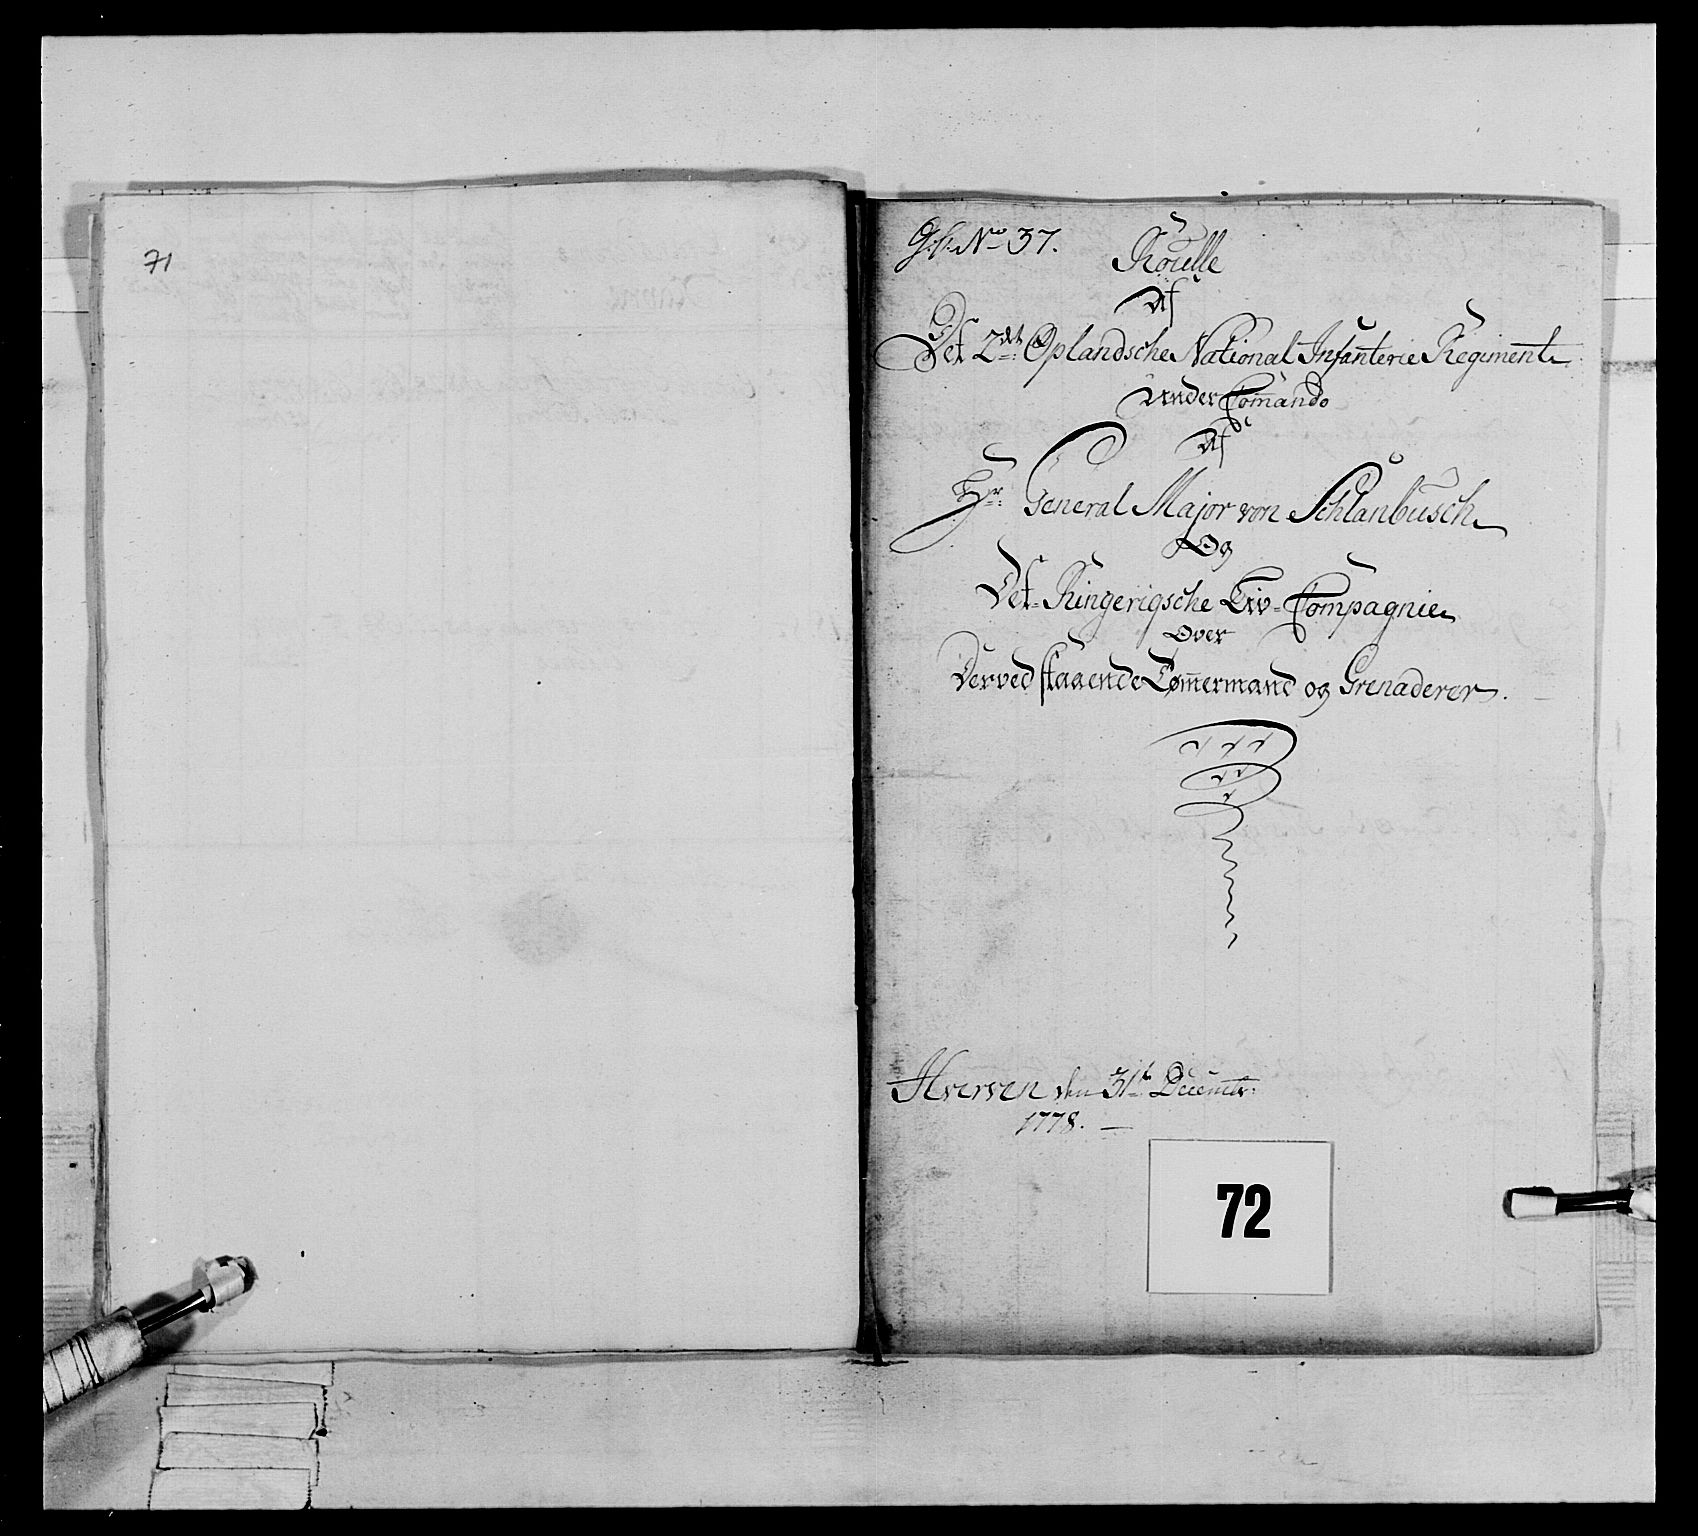 71
No 37.
Roulle
Af
Det 2det Oplandsche National Infanterie Regiment
Under Comando
Af
Hr: General Major von Schlanbusch
Og
Det Ringerigsche Liv-Compagnie
Over
Derved staaende Tømermænd og Grenaderer.
Hverven den 31t Decembr:
1778.
72